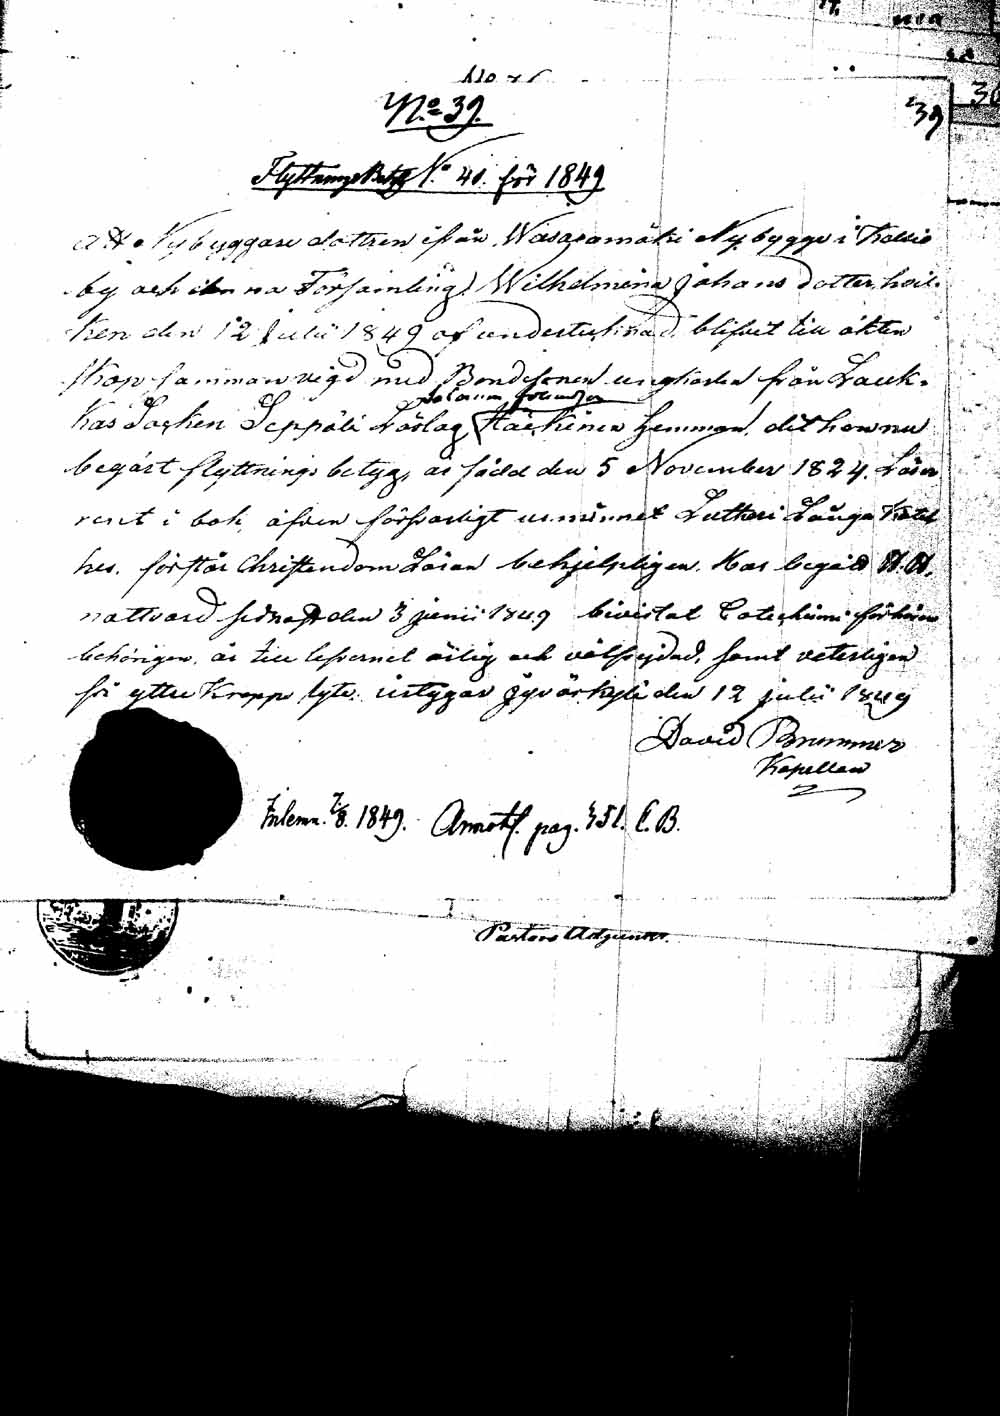 No 39.
39
Flyttnings Betyg No 40. för 1849
Att Nybyggare dottren ifrån Wasaramäki Nybygge i
by och denna Församling, Wilhelmina Johans dotter, hvil-
ken den 12 Julii 1849 af undertecknad blifvit till äkten
skap sammanvigd med Bondesonen ynglingen från Lauk-
kas Socken Seppälä Löslag Häckinen Hemman, dit hon nu
begärt flyttnings betyg, är född den 5 November 1824. Läser
rent i bok, äfven försvarligt ur minnet Lutheri Långa Katek
hes. förstår Christendoms Läran behjelpligen. Har begått H. H.
nattvard sednast den 3 junii 1849 bivistat Catechismi förhören
behörigen, är till lefvernet ärlig och välfrejdad, samt veterligen
fri yttre Kropps lyte; intygar Jyväskylä den 12 julii 1849
David Brummer
Kapellan
Inlemn. 7/8. 1849. Annoth. pag. 451. C. B.
Pastors Adjunct.